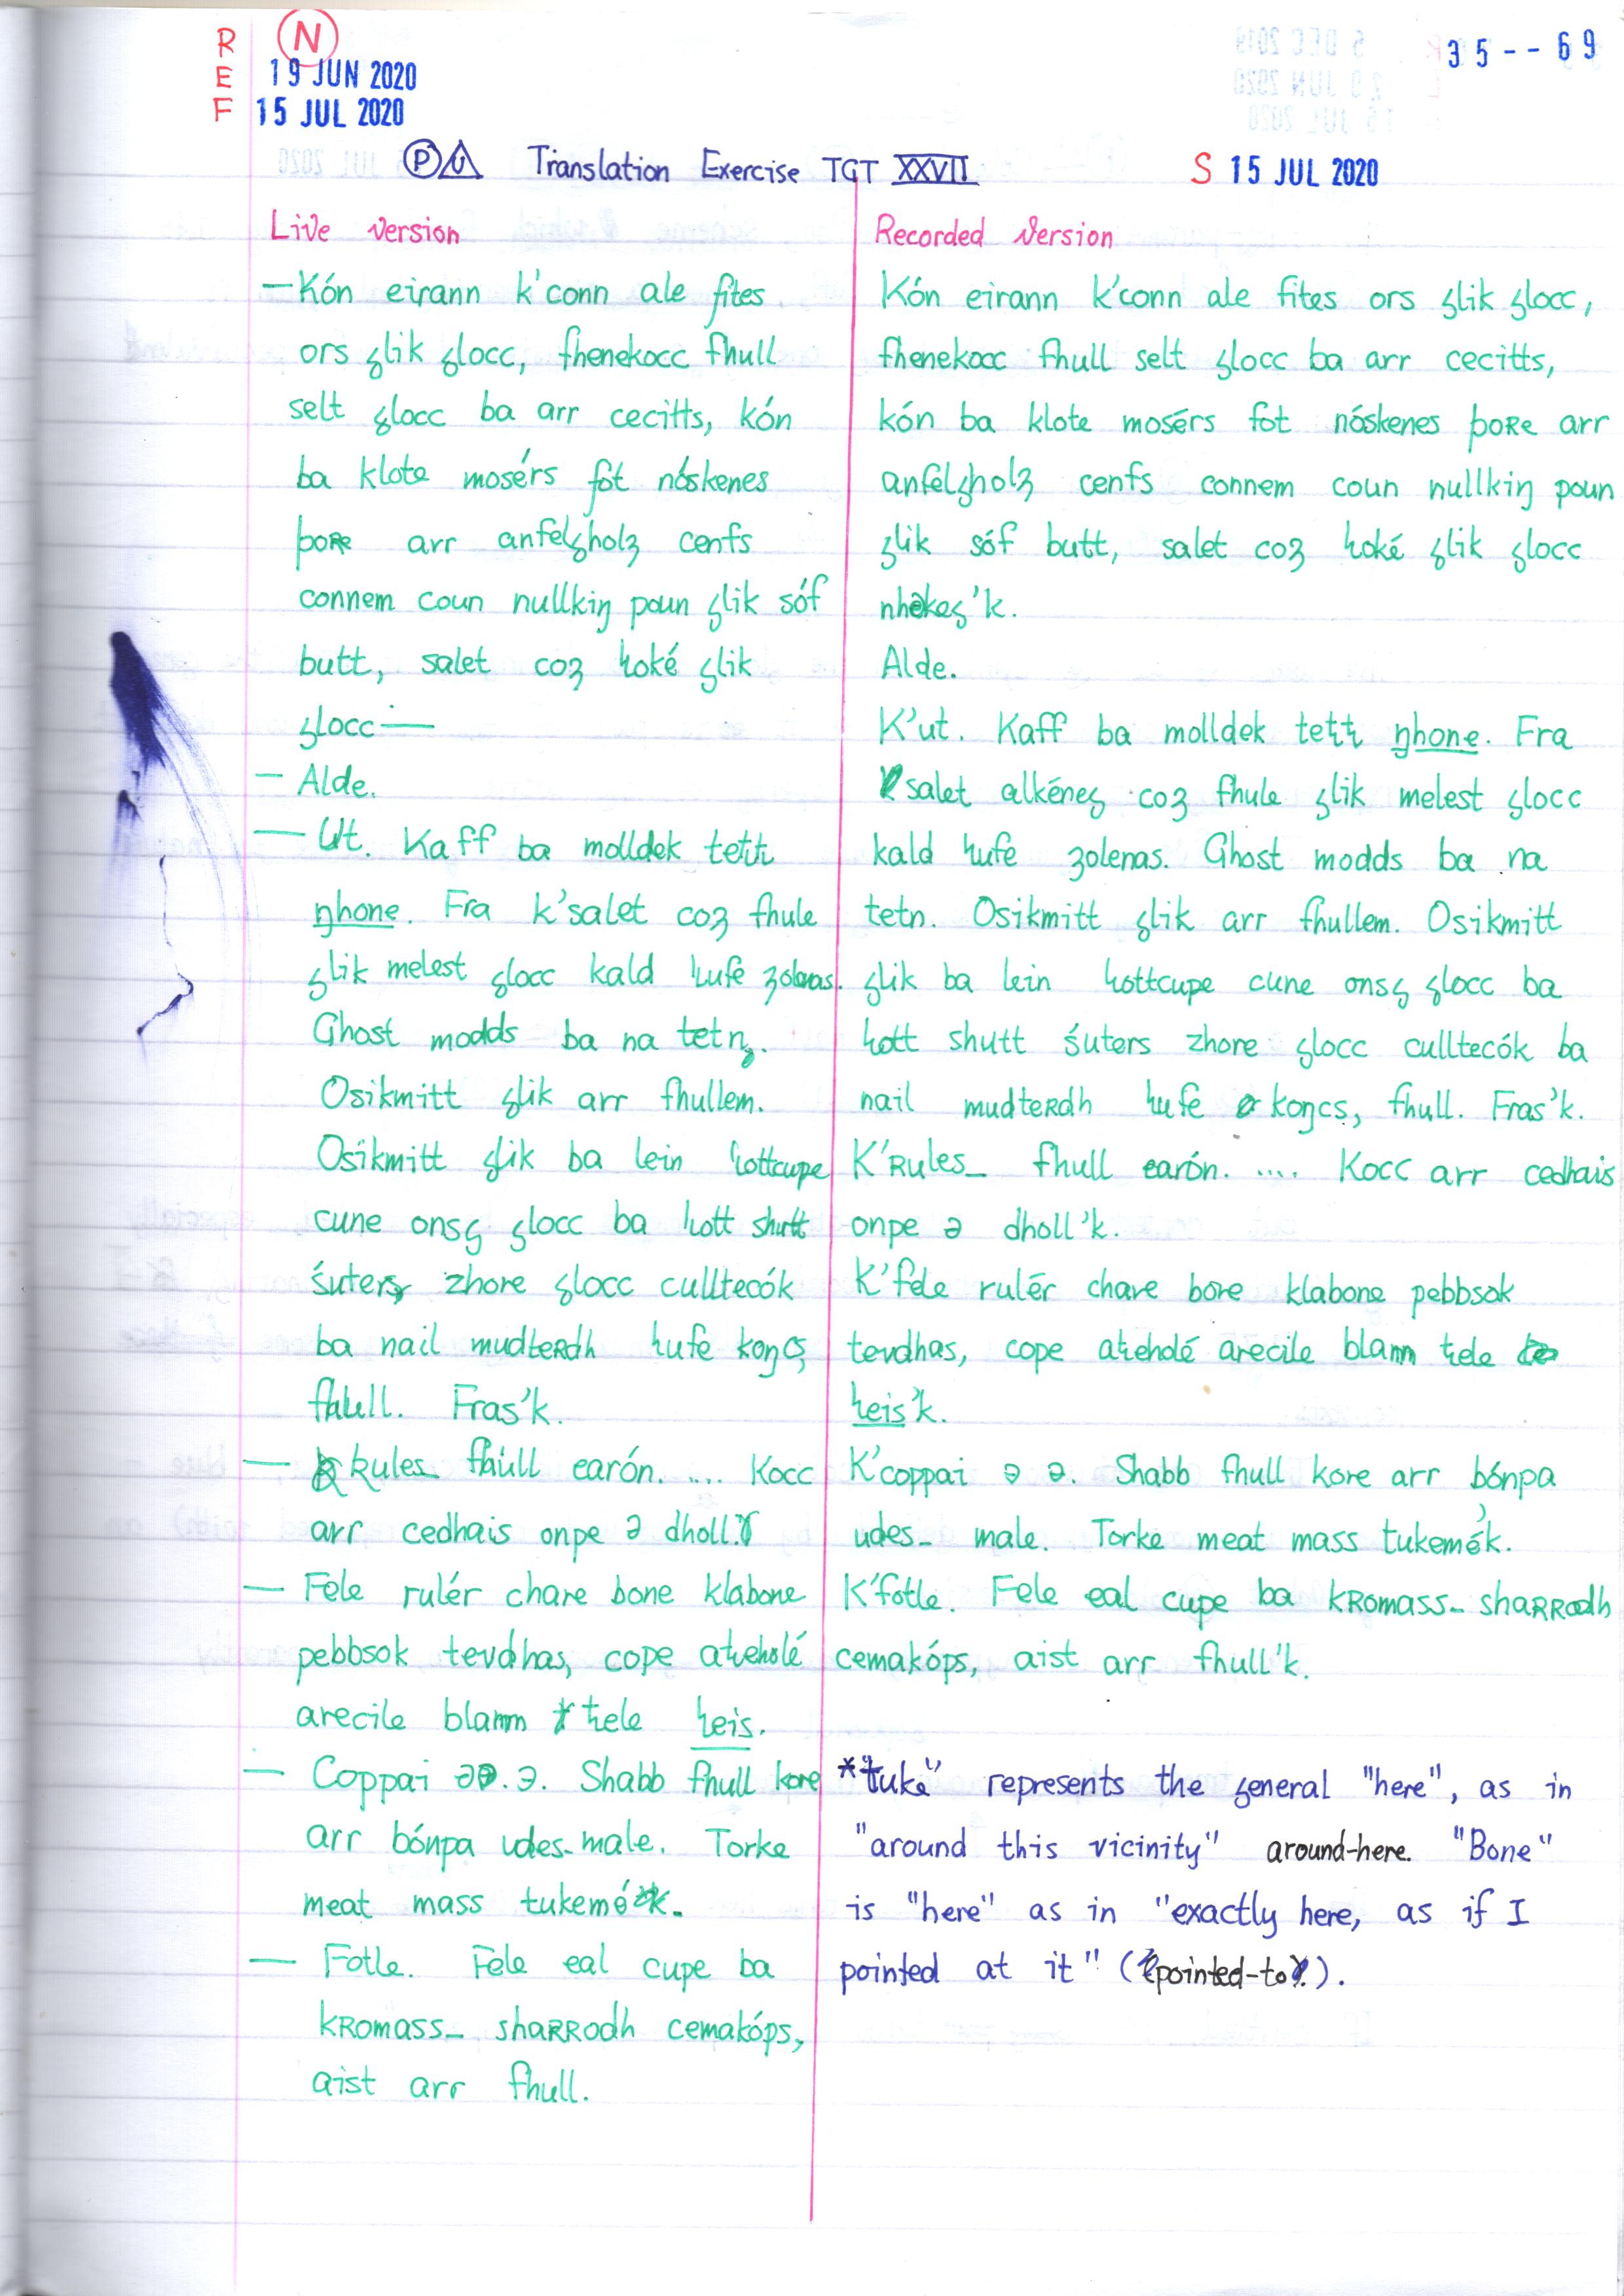 R
E
F
N
19 JUN 2020
15 JUL 2020
35--69
Translation Exercise TGT XXVII
S 15 JUL 2020
Live version
—Kón eirann k'conn ale fites
ors ȿlik ȿlocc, fhenekocc fhull
selt ȿlocc ba arr cecitts, kón
ba klote mosérs fot nóskenes
þoʀe arr anfelȿholʒ cenfs
connem coun nullkiŋ poun ȿlik sóf
butt, salet coʒ ħoké ȿlik
ȿlocc —
— Alde.
— Ut. Kaff ba molldek tetħ
ŋhone. Fra k'salet coʒ fhule
ȿlik melest ȿlocc kald ħufe ʒolenas.
Ghost modds ba na tetn.
Osikmitt ȿlik arr fhullem.
Osikmitt ȿlik ba lein ħottcupe
cune onsȿ ȿlocc ba ħott shutt
śuters zhore ȿlocc culltecók
ba nail mudteʀdh ħufe koŋcs,
fhull. Fras'k.
— Rules_ fhull earón. .... Kocc
arr cedhais onpe ə dholl.
— Fele rulér chare bone klabone
pebbsok tevdhas, cope aŧeholé
arecile blamm ŧele ħeis.
— Coppai ə. ə. Shabb fhull kore
arr bónpa udes_male. Torke
meat mass tukemé.
— Fotle. Fele eal cupe ba
kʀomass_ shaʀʀodh cemakóps,
aist arr fhull.
Recorded version
Kón eirann k'conn ale fites ors ȿlik ȿlocc,
fhenekocc fhull selt ȿlocc ba arr cecitts,
kón ba klote mosérs fot nóskenes þoʀe arr
anfelȿholʒ cenfs connem coun nullkiŋ poun
ȿlik sóf butt, salet coʒ ħoké ȿlik ȿlocc
nhekeȿ'k.
Alde.
K'ut. Kaff ba molldek tetŧ ŋhone. Fra
salet alkéneȿ coʒ fhule ȿlik melest ȿlocc
kald ħufe ʒolenas. Ghost modds ba na
tetn. Osikmitt ȿlik arr fhullem. Osikmitt
ȿlik ba lein ħottcupe cune onsȿ ȿlocc ba
ħott shutt śuters zhore ȿlocc culltecók ba
nail mudteʀdh ħufe koŋcs, fhull. Fras'k.
K'ʀules_ fhull earón. .... Kocc arr cedhais
onpe ə dholl'k.
K'fele rulér chare bore klabone pebbsok
tevdhas, cope aŧeholé arecile blamm ŧele
ħeis'k.
K'coppai ə ə. Shabb fhull kore arr bónpa
udes_ male. Torke meat mass tukemé'k.
K'fotle. Fele eal cupe ba kʀomass_ shaʀʀodh
cemakóps, aist arr fhull'k.
*"tuke" represents the general "here", as in
"around this vicinity" around-here. "Bone"
is "here" as in "exactly here, as if I
pointed at it" (pointed-to).